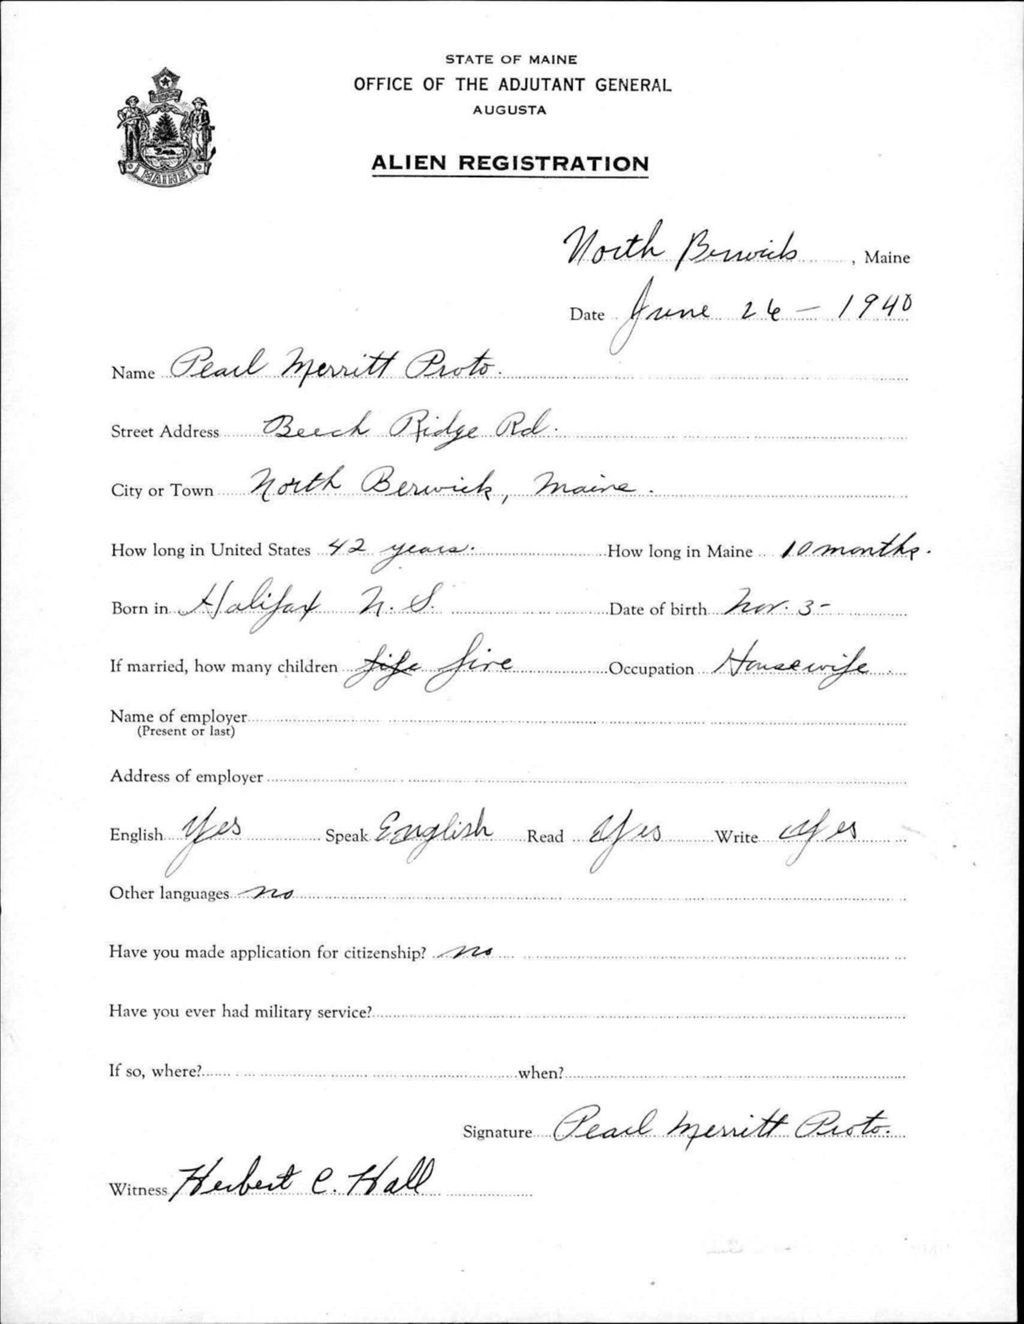 STATE OF MAINE
OFFICE OF THE ADJUTANT GENERAL
AUGUSTA
ALIEN REGISTRATION
MAINE
North Berwick, Maine
Date June 26 - 1940
Name Pearl Merritt Proto.
Street Address Beech Ridge Rd.
City or Town North Berwick, Maine.
How long in United States 42 years. How long in Maine 10 months.
Born in Halifax N. S. Date of birth Nov. 3-
If married, how many children five Occupation Housewife
Name of employer
(Present or last)
Address of employer
English Yes Speak English Read Yes Write Yes
Other languages no
Have you made application for citizenship? no
Have you ever had military service?
If so, where? when?
Signature Pearl Merritt Proto.
Witness Herbert C. Hall